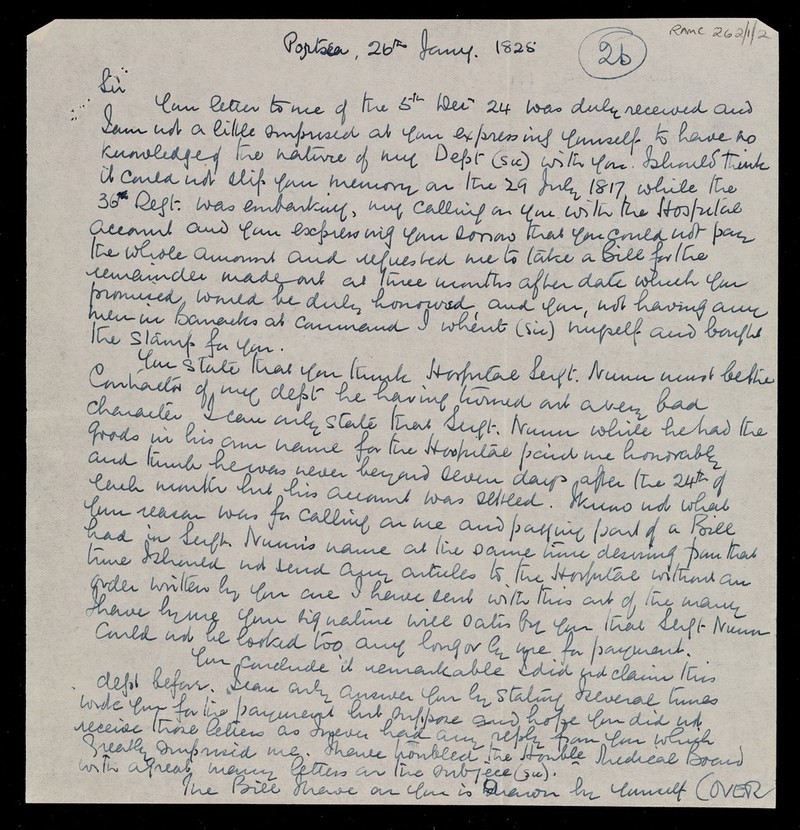 RAMC 262/1/2
Portsea, 26th Jany. 1825
26
Sir
Your letter to me of the 5th Dec 24 was duly received and
I am not a little surprised at your expressing yourself to have no
knowledge of the nature of my Dept (sic) with you. I should think
it could not slip your memory on the 29 July 1817 while the
36th Regt. was embarking, my calling on you with the Hospital
account and your expressing your sorrow that you could not pay
the whole amount and requested me to take a Bill for the
remainder made out at three months after date which you
promised would be duly honoured and you, not having any
men in Barracks at command I whent (sic) myself and bought
the stamp for you.
You state that you think Hospital Sergt. Nunn must be the
Contractor of my dept he having turned out a very bad
character I can only state that Sergt. Nunn while he had the
goods in his own name for the Hospital paid me honorably
and think he was never beyond seven days after the 24th of
each month but his account was settled. I know not what
your reason was for calling on me and paying part of a Bill
had in Sergt. Nunn's name at the same time desiring from that
time I should not send any articles to the Hospital without an
order written by you one I have sent with this out of the many
I have by me your signature will satisfy you that Sergt Nunn
could not be looked too any longer by me for payment.
You conclude it remarkable I did not claim this
dept before. I can only answer you by stating several times
wrote you for the payment but suppose and hope you did not
receive those letters as I never had any reply from you which
greatly surprised me. I have troubled the Honble Medical Board
with a great many letters on the subjece (sic).
The Bill I have on you is drawn by yourself (OVER